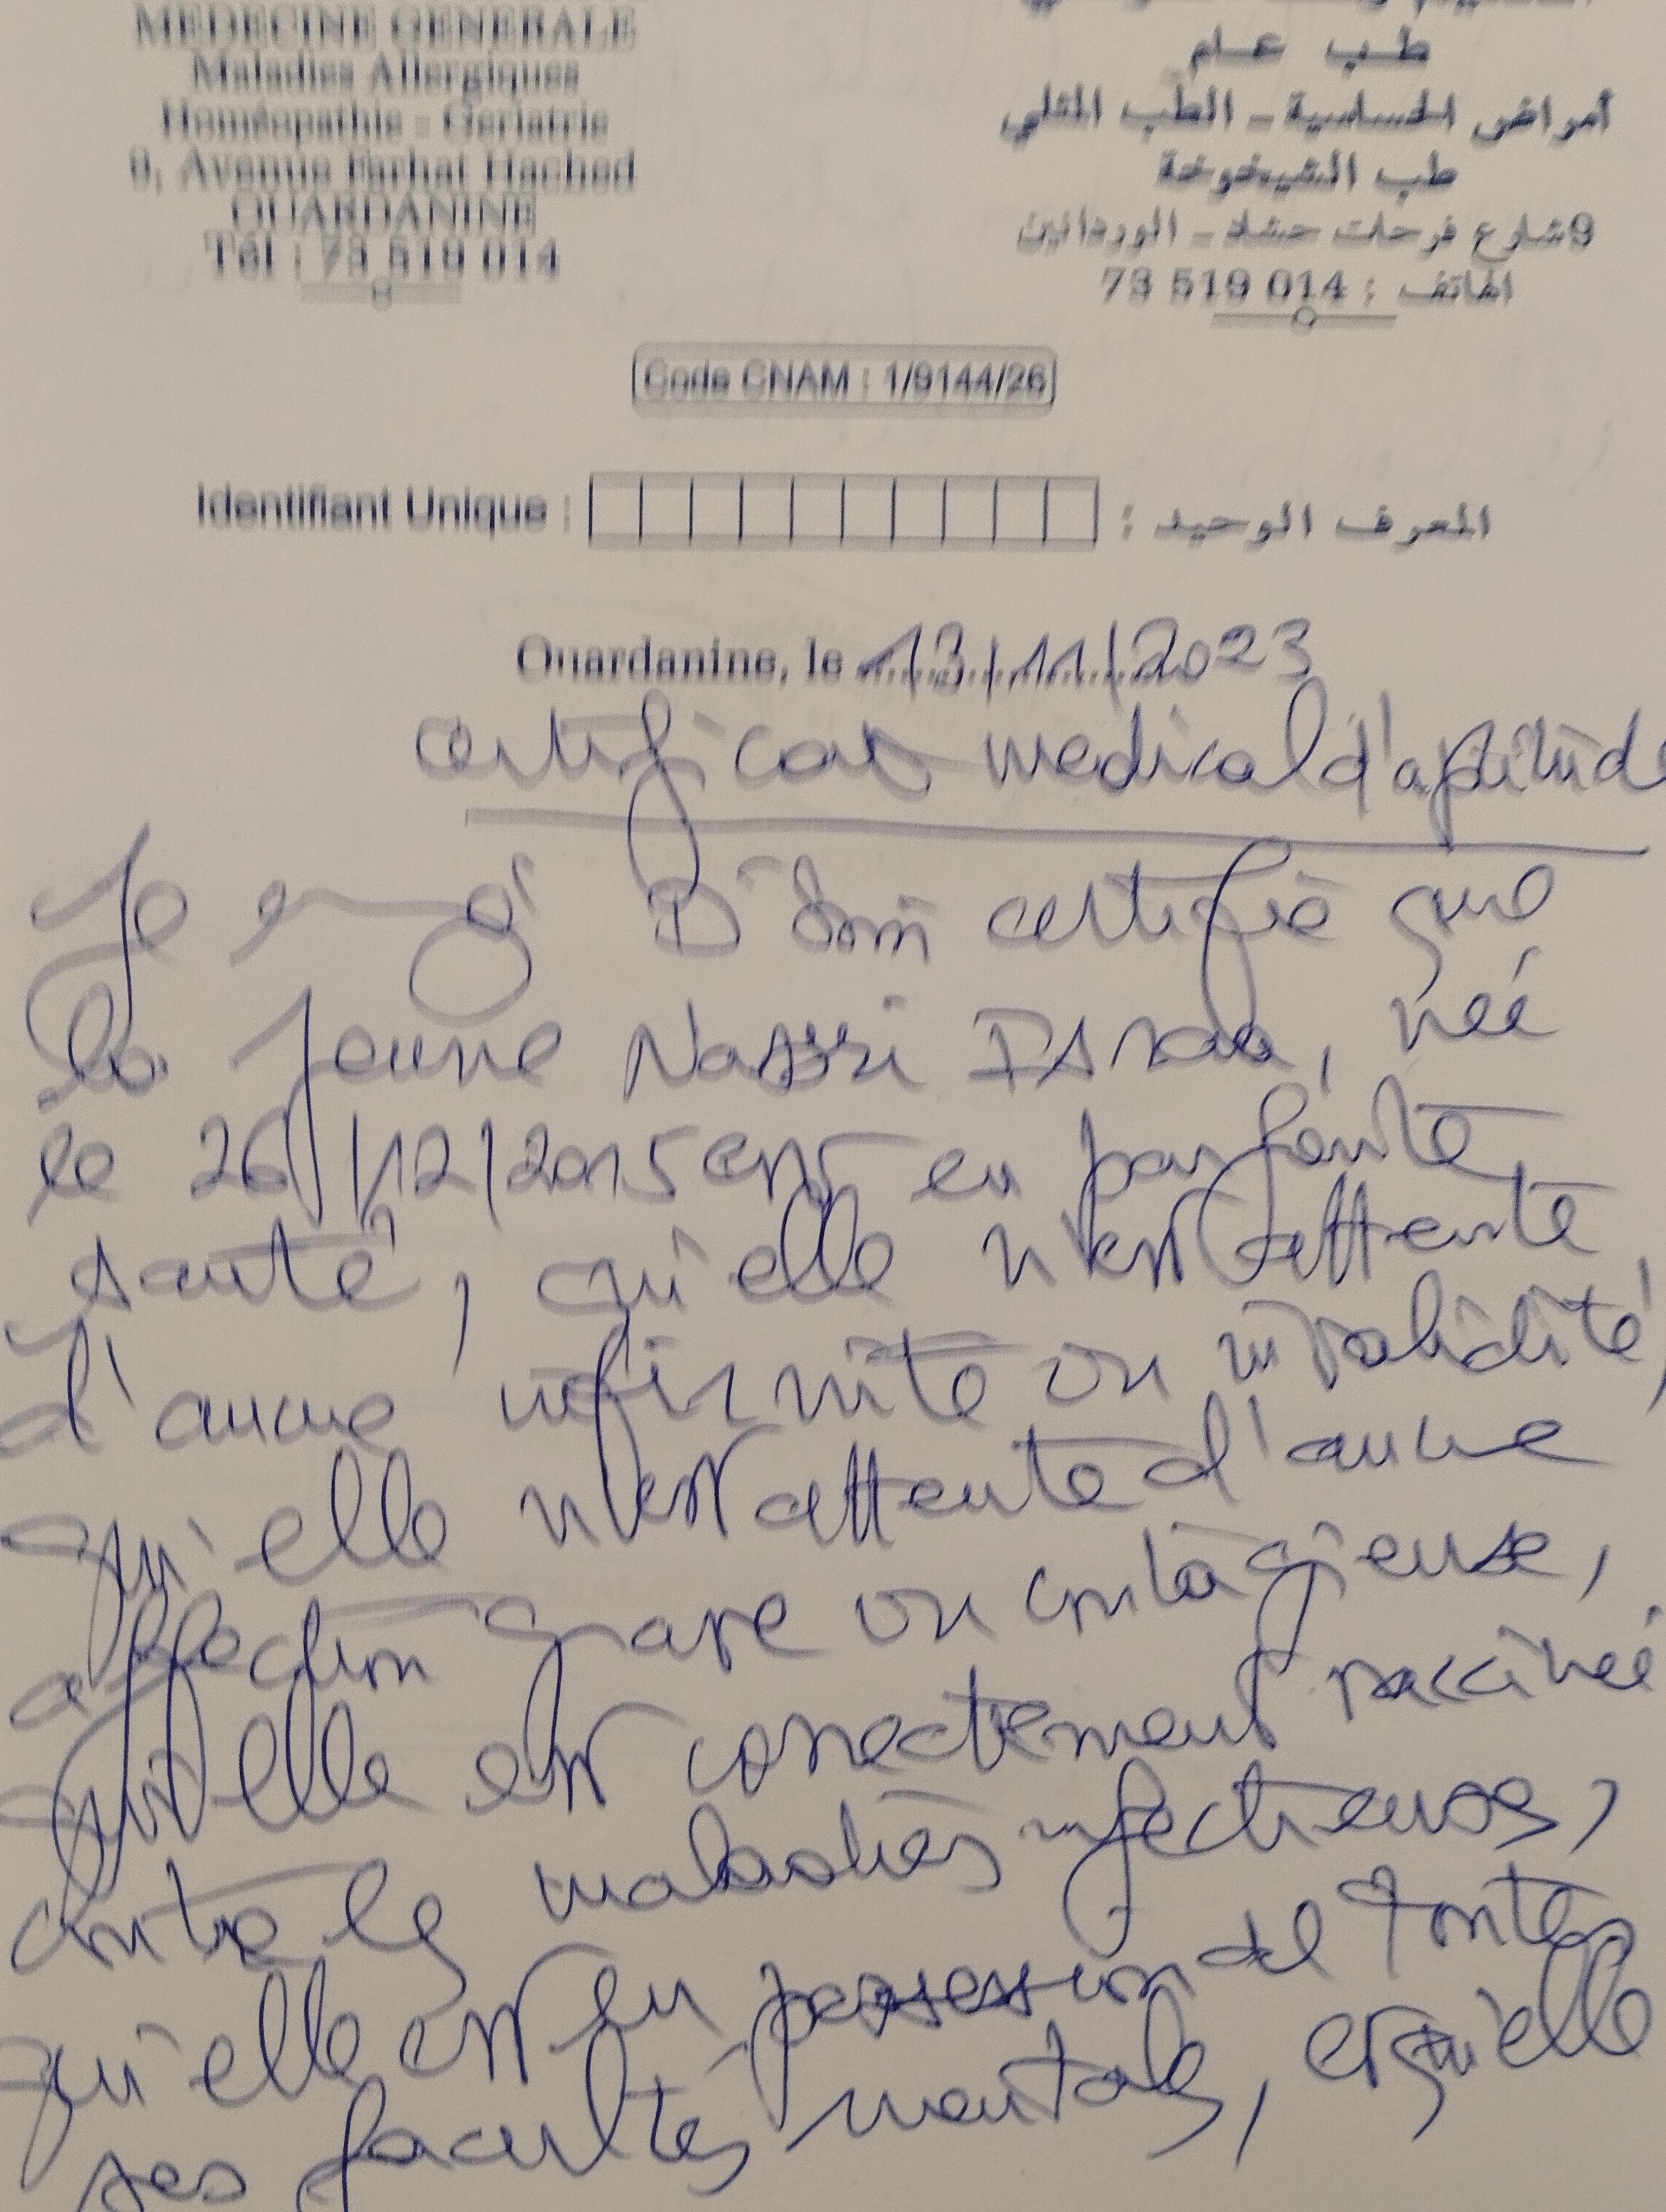 MEDECINE GENERALE
Maladies Allergiques
Homéopathie - Gériatrie
9, Avenue Farhat Hached
OUARDANINE
Tél : 73 519 014
طب عام
أمراض الحساسية - الطب المثلي
طب الشيخوخة
9 شارع فرحات حشاد - الوردانين
الهاتف : 73 519 014
Code CNAM : 1/9144/26
Identifiant Unique : المعرف الوحيد :
Ouardanine, le 13/11/2023
certificat medical d'aptitude
Je certifie que
la jeune Nassri Israa, née
le 26/12/2015 est en parfaite
santé, qu'elle n'est atteinte
d'aucune infirmité ou invalidité,
qu'elle n'est atteinte d'aucune
affection grave ou contagieuse,
qu'elle est correctement vaccinée
contre les maladies infectieuses,
qu'elle est en possession de toutes
ses facultés mentales, et qu'elle